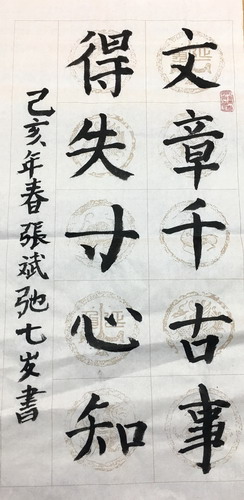 文章千古事
得失寸心知
己亥年春張斌弛七岁書